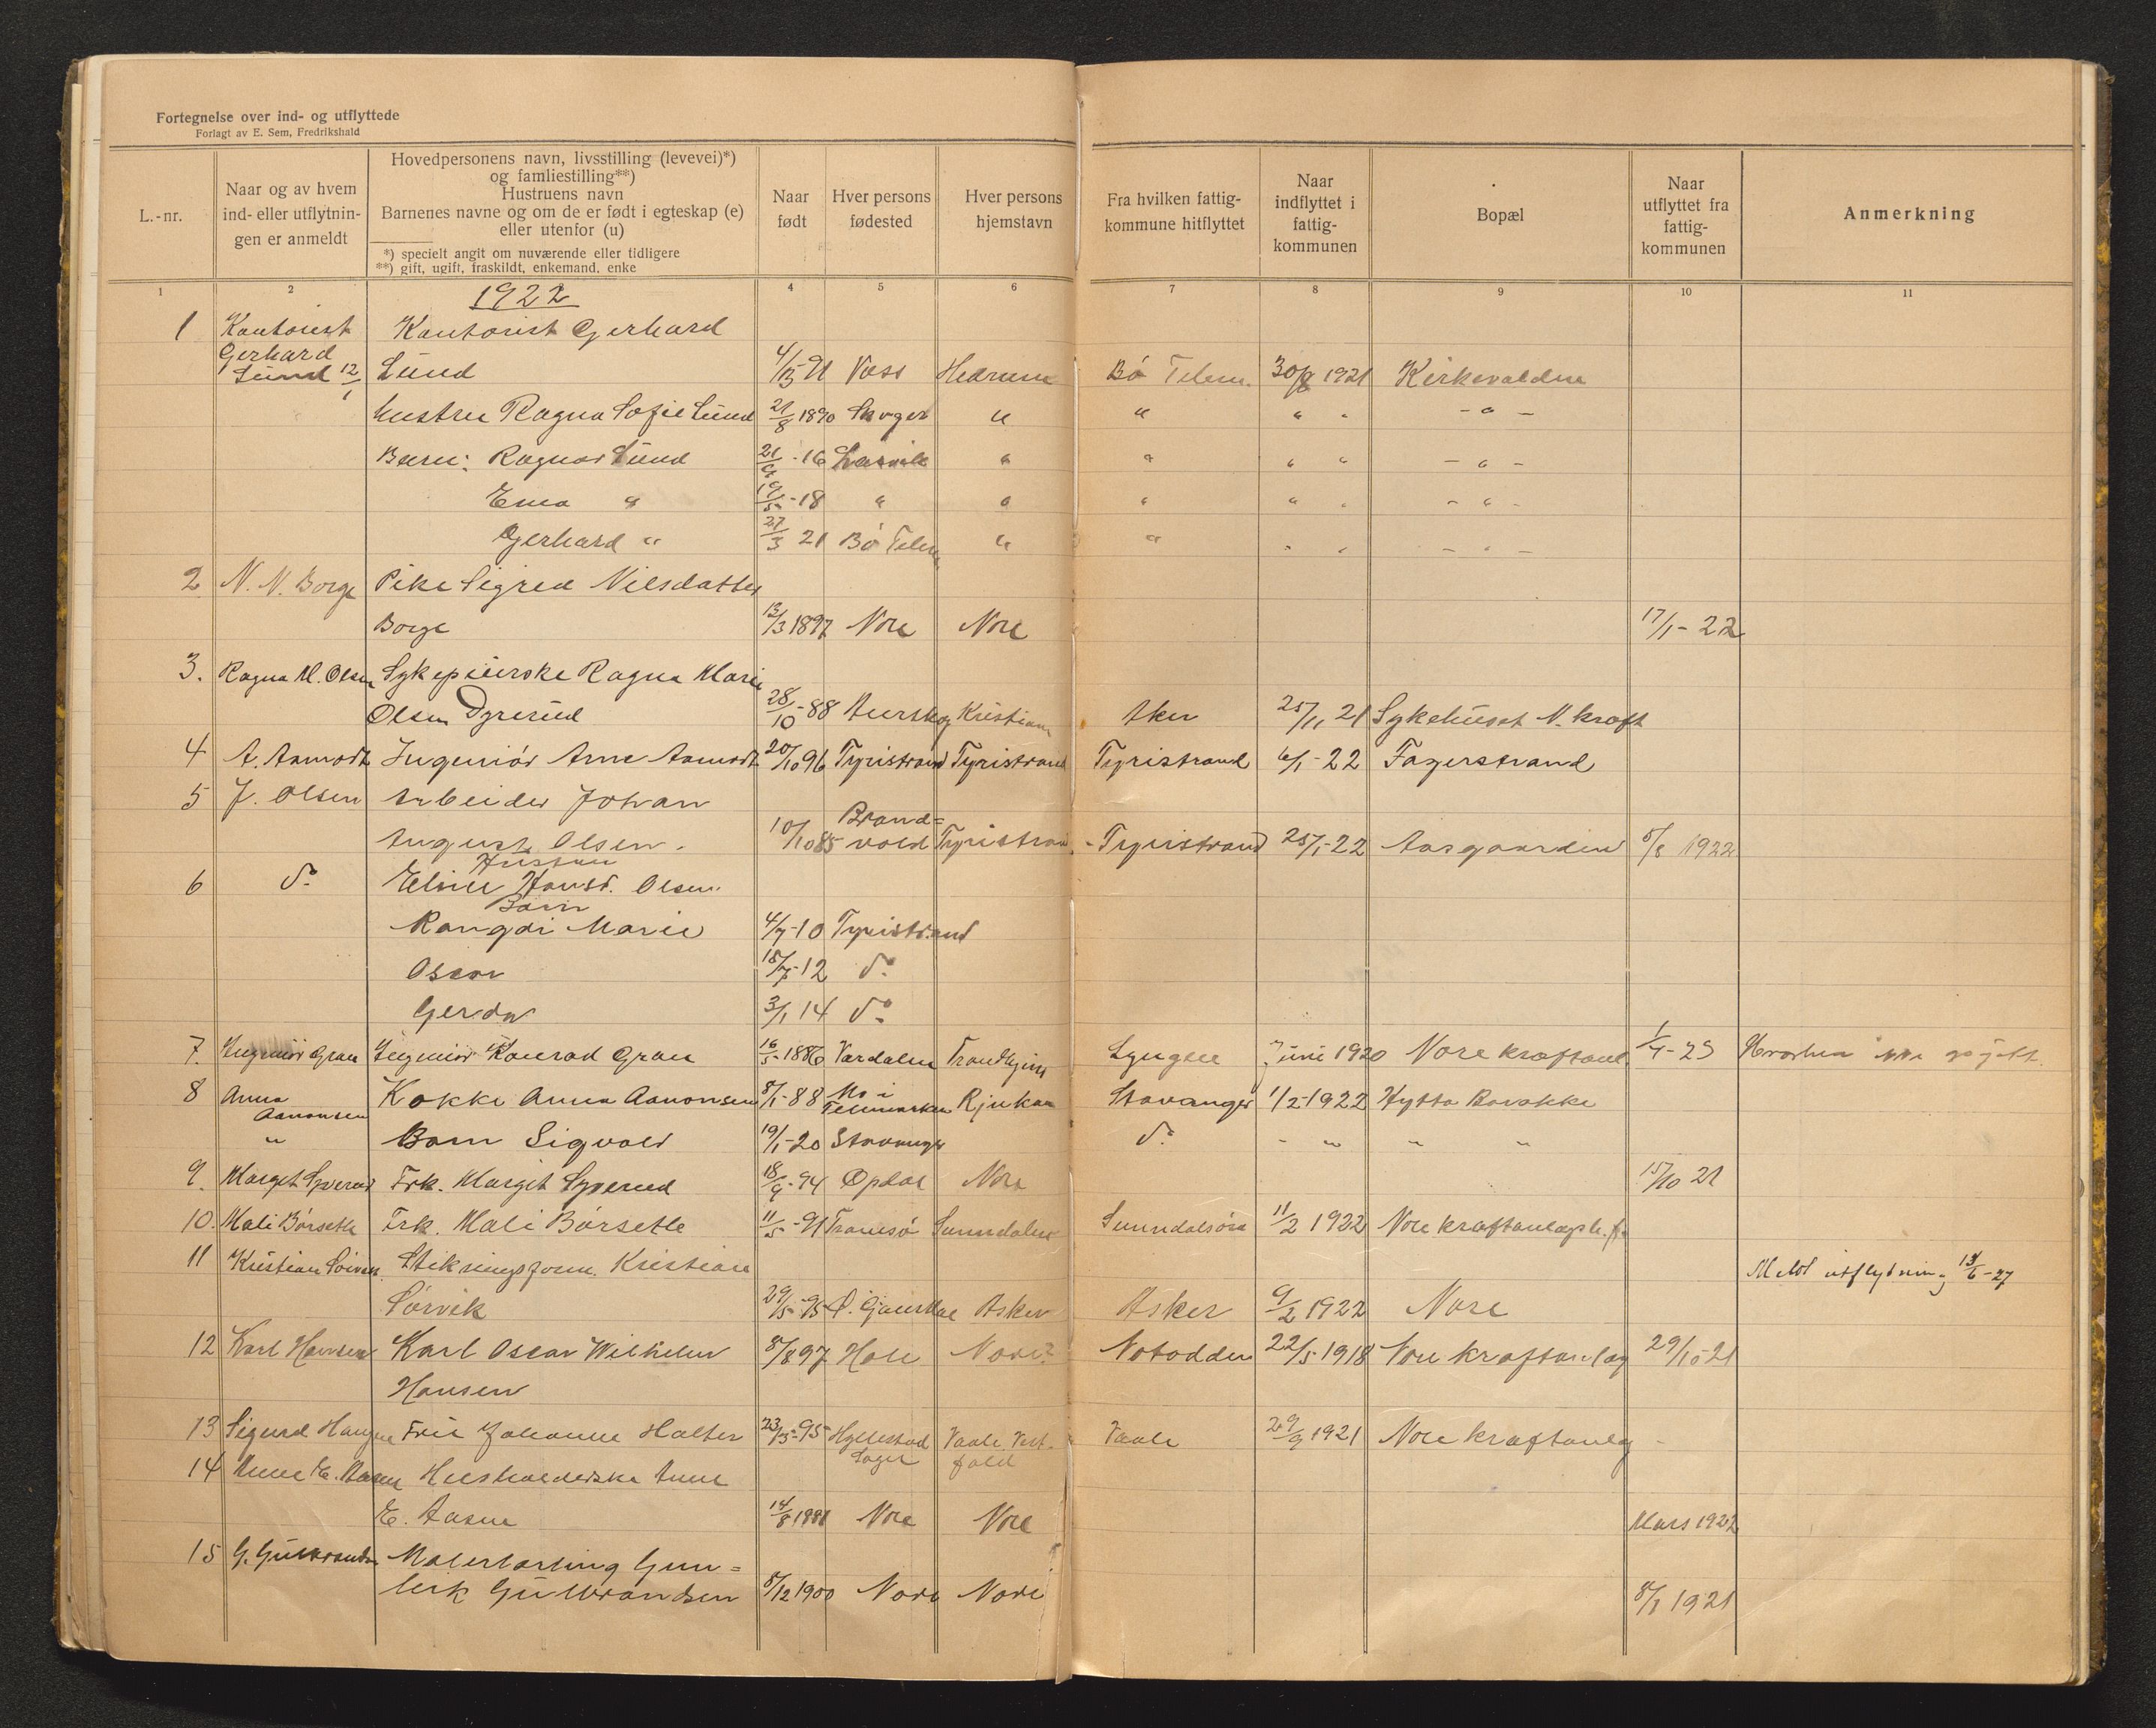 Fortegnelse over ind- og utflyttede
Forlagt av E. Sem, Fredrikshald
L.-nr.
Naar og av hvem ind- eller utflytnin- gen er anmeldt
Hovedpersonens navn, livsstilling (levevei)*)
og famliestilling**)
Hustruens navn
Barnenes navne og om de er født i egteskap (e)
eller utenfor (u)
*) specielt angit om nuværende eller tidligere
**) gift, ugift, fraskildt, enkemand, enke
Naar født
Hver persons fødested
Hver persons hjemstavn
Fra hvilken fattig- kommune hitflyttet
Naar indflyttet i fattig- kommunen
Bopæl
Naar utflyttet fra fattig- kommunen
Anmerkning
1 2 4 5 6 7 8 9 10 11
1922
1 Kontorist Kontorist Gerhard
Gerhard
Lund 12/1 Lund Voss Bø Telem. 1921
Hustru Ragna Sofie Lund 21/8 1890 Skoger " " " " - " -
Barn: Ragnar Lund -16 " " " " - " -
Erna " 19/5-18 " " " " " - " -
Gerhard " 27/3 21 Bø Telem " " " " - " -
2 N. N. Borge Pike Sigrid Nilsdatter
Borge 13/3 1897 Nore Nore 17/1-22
3. Ragna M. Olsen Sykepleierske Ragna Marie
Olsen Dyrerud 28/10-88 Aurskog Kristiania Aker 25/11 21 Sykehuset N. kraft
4 A. Aamodt Ingeniør Arne Aamodt 20/10 96 Tyristrand Tyristrand Tyristrand 6/1-22 Fagerstrand
5 J. Olsen Arbeider Johan
August Olsen. 10/10 85 Brand=vold Tyristrand Tyristrand 25/1-22 Aasgaarden 5/8 1922
Hustru
6 do Hansd. Olsen.
Barn
Rangdi Marie 4/7-10 Tyristrand
Oscar 12 do
Gerda 3/1 14 do
7. Ingeniør Gran Ingeniør Konrad Gran 16/5-1886 Værdalen Trondhjem Lyngen Juni 1920 Nore kraftanl.
8 Anna Aanonsen Kokke Anna Aanonsen 8/1-88 Mo i Telemarken Rjukan Stavanger 1/2-1922 Hytta Barakke
" Barn Sigvald 19/1-20 Stavanger do - " " "
9. Marget Syverud Frk. Margit Syverud 18/9-94 Opdal Nore 15/10 21
10. Mali Børseth Frk. Mali Børseth 11/5-91 Tromsø Sunndalen Sunndalsøra 11/2 1922
11 Kristian Stikningsform. Kristian
Meldt utflytning 13/6-27
Sørvik 29/5-95 Asker Asker 9/2 1922 Nore
12 Karl Hansen Karl Oscar Wilhelm 8/8 97 Hole Nore? Notodden 22/5-1918 Nore kraftanlæg 29/10-21
Hansen
13 Sigurd Haugen Johanne Holter 95 Hyllestad Vaale Vest- Vaale 29/9 1921 Nore kraftanlæg
fold
14 Husholderske Anne
E. Aasen 14/8 Nore Nore Mars 1922
15 G. Gulbrandsen Malerlærling Gun=
leik Gulbrandsen 8/12 1900 Nore Nore 1921